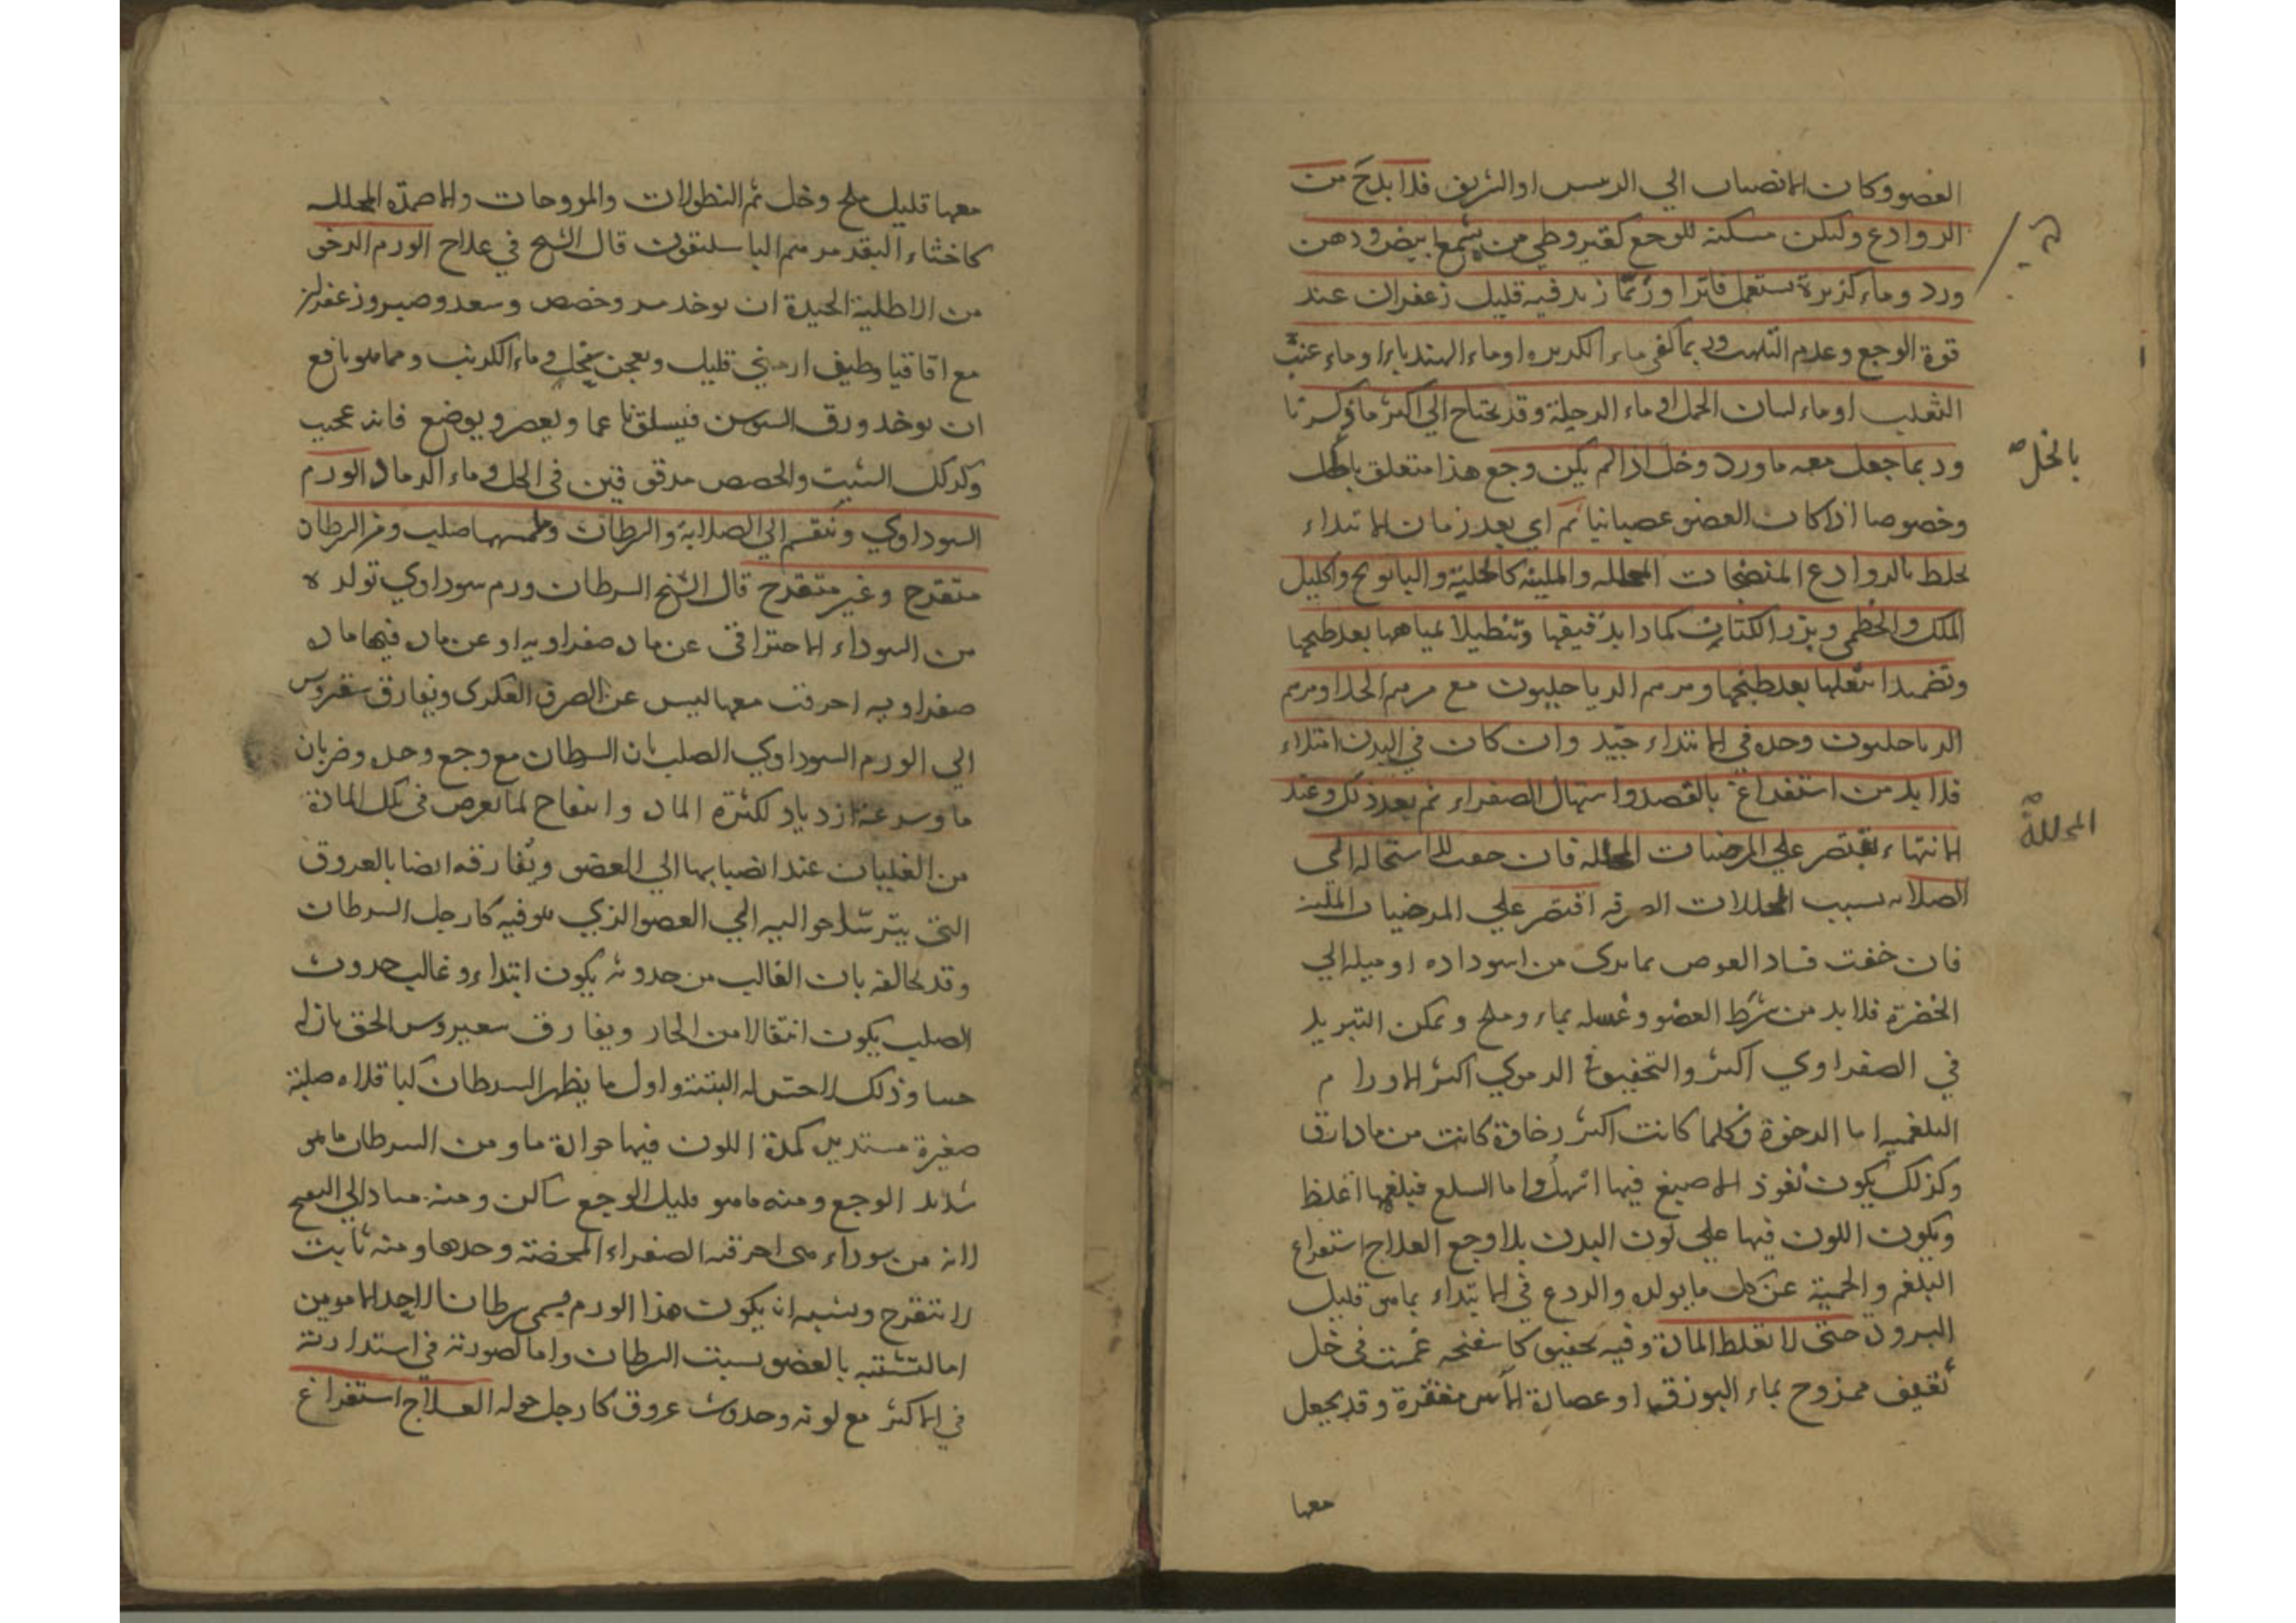 العضو وكان الانصباب الي الرييس او الشريف فلا بد ح من
الروادع وليكن مسكنه للوجع كقيروطي من شمع ابيض ودهن
ورد وماء كزبرة يستعمل فاترا وربما زيد فيه قليل زعفران عند
قوة الوجع وعدم التلهب وربما كفى ماء الكزبره او ماء الهندباء او ماء عنب
الثعلب او ماء لسان الحمل او ماء الرجلة وقد يحتاج الي اكثر ما ذكرنا
وربما جعل معه ماورد وخل اذا لم يكن وجع هذا متعلق
بالخل صح
وخصوصا اذا كان العضو عصبانيا ثم اي بعد زمان الابتداء
يخلط بالروادع المنضجات المحلله والملينه كالحلبة والبابونج واكليل
الملك والخطمي وبزر الكتان كمادا بدقيقها وتنطيلا بمياهها بعد طبخها
وتضميدا بثفلها بعد طبخها ومرهم الدياخليون مع مرهم الخل او مرهم
الدياخليون وحده في الابتداء جيد وان كان في البدن امتلاء
فلا بد من استفراغ بالفصد واسهال الصفراء ثم بعد ذلك وعند
الانتهاء يقتصر علي المرخيات المحلله فان خفت استحاله الى
المحللة صح
الصلابه بسبب المحللات الصرفه اقتصر علي المرخيات الملينة
فان خفت فساد العضو بما يرى من اسوداده او ميله الي
الخضرة فلا بد من شرط العضو وغسله بماء وملح وليكن التبريد
في الصفراوي اكثر والتجفيف في الدموي اكثر الاورام
البلغميه اما الرخوة وكلما كانت اكثر رخاوة كانت من مادة ارق
وكذلك يكون نفوذ الاصبع فيها اسهل واما السلع فبلغمها اغلظ
ويكون اللون فيها علي لون البدن بلا وجع العلاج استفراغ
البلغم والحمية عن كل ما يولده والردع في الابتداء بما هو قليل
البرودة حتى لا تغلظ المادة وفيه تجفيف كاسفنجه غمست في خل
ثقيف ممزوج بماء البورق او عصارة الآس مفردة وقد يجعل
معها
معها قليل ملح وخل ثم النطولات والمروخات والاضمدة المحلله
كاخثاء البقر مرهم الباسليقون قال الشيخ في علاج الورم الرخو
من الاطلية الجيدة ان يوخذ مر وحضض وسعد وصبر وزعفران
مع اقاقيا وطين ارمني قليل ويعجن بخل وماء الكرنب ومما هو نافع
ان يوخذ ورق السوسن فيسلق ناعما ويعصر ويوضع فانه عجيب
وكذلك الشبت والحمص مدقوقين في الخل وماء الرماد الورم
السوداوي وينقسم الي الصلابة والسرطان وملمسهما صلب ومن السرطان
متقرح وغير متقرح قال الشيخ السرطان ورم سوداوي تولده
من السوداء الاحتراقي عن ماده صفراويه او عن ماده فيها ماده
صفراويه احرقت معها ليس عن الصرف العكرى ويفارق سقيروس
الي الورم السوداوي الصلب بان السرطان مع وجع وحده وضربان
ما وسرعة ازدياد لكثرة الماده وانتفاخ لما يعرض في تلك المادة
من الغليان عند انصبابها الي العضو ويفارقه ايضا بالعروق
التي يرسلها حواليه الي العضو الذي هو فيه كارجل السرطان
وقد يخالفه بان الغالب من حدوثه يكون ابتداء وغالب حدوث
الصلب يكون انتقالا من الحار ويفارق سقيروس الحق بان له
حسا وذلك لا حس له البتة واول ما يظهر السرطان كباقلاه صلبة
صغيرة مستديره كمدة اللون فيها حرارة ما ومن السرطان ما هو
شديد الوجع ومنه ما هو قليل الوجع ساكن ومنه متاد الي التقرح
لانه من سوداء هي احرقته الصفراء المحضة وحدها ومنه ثابت
لا يتقرح ويشبه ان يكون هذا الورم يسمى سرطانا لاحد الامرين
اما لتشبثه بالعضو تشبث السرطان واما لصورته في استدارته
في الاكثر مع لونه وحدوث عروق كارجل حوله العلاج استفراغ